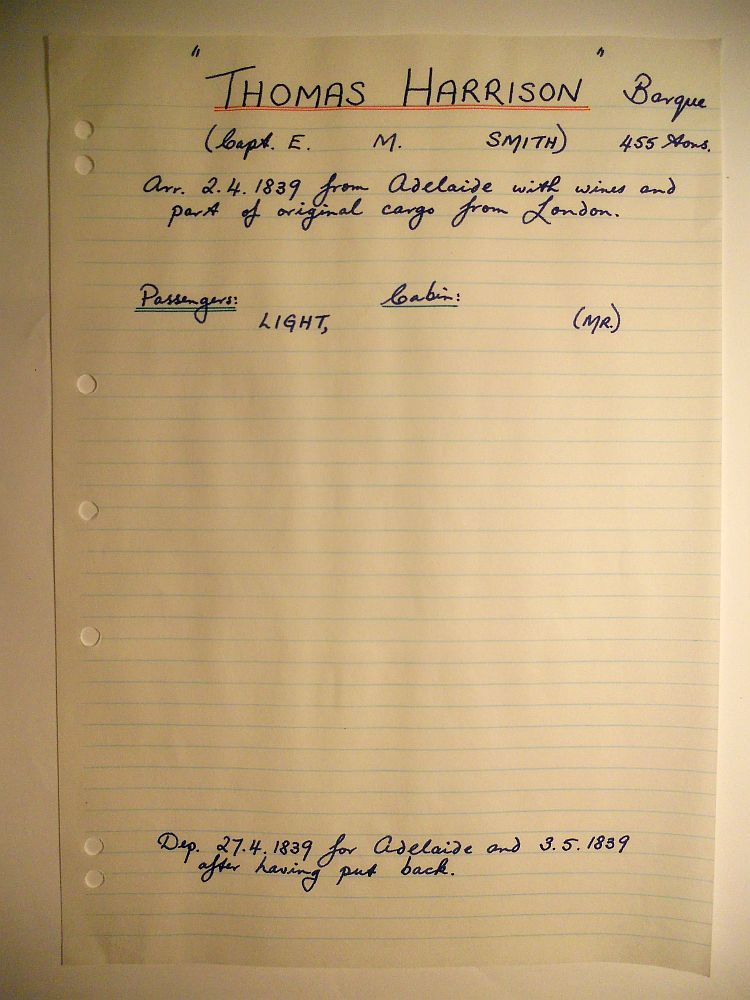 "THOMAS HARRISON" Barque
(Capt. E. M. SMITH) 455 tons.
Arr. 2.4.1839 from Adelaide with wines and
part of original cargo from London.
Passengers: Cabin:
LIGHT, (MR.)
Dep. 27.4.1839 for Adelaide and 3.5.1839
after having put back.